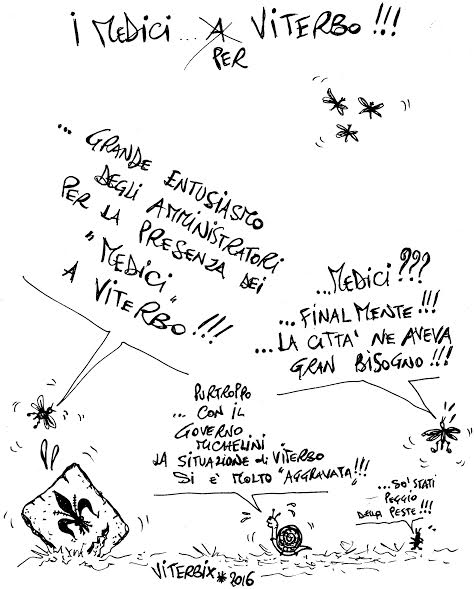 I MEDICI ... A VITERBO !!!
PER
... GRANDE ENTUSIASMO
DEGLI AMMINISTRATORI
PER LA PRESENZA DEI
"MEDICI"
A VITERBO !!!
...MEDICI ???
...FINALMENTE !!!
...LA CITTA' NE AVEVA
GRAN BISOGNO !!!
PURTROPPO
... CON IL
GOVERNO
MICHELINI
LA SITUAZIONE di VITERBO
SI E' MOLTO "AGGRAVATA" !!!
...SO' STATI
PEGGIO
DELLA PESTE !!!
VITERBIX * 2016